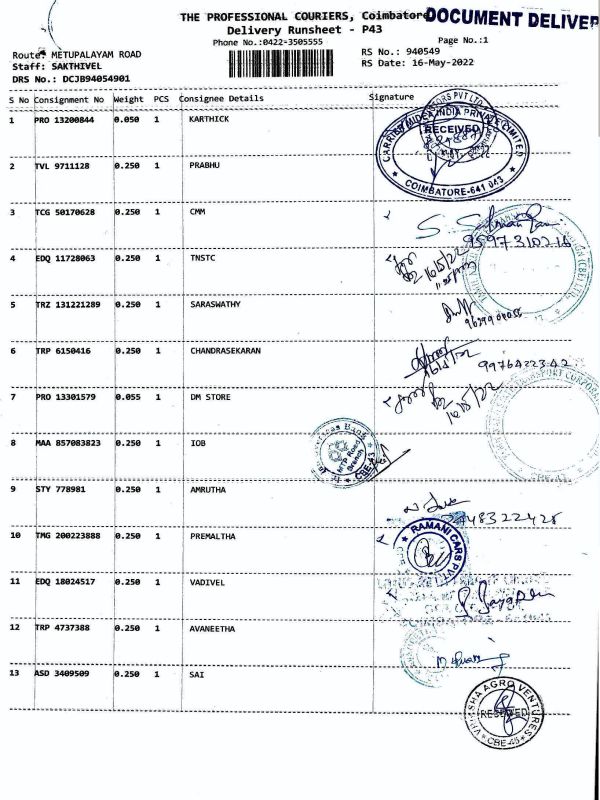 THE PROFESSIONAL COURIERS, Coimbatore
DOCUMENT DELIVER
Delivery Runsheet - P43
Phone No.:0422-3505555
Page No.:1
Route: METUPALAYAM ROAD
RS No.: 940549
Staff: SAKTHIVEL
RS Date: 16-May-2022
DRS No.: DCJB94054901
S No Consignment No Weight PCS Consignee Details Signature
1 PRO 13200844 0.050 1 KARTHICK
CARRIER MIDEA INDIA PRIVATE LIMITED
RECEIVED
COIMBATORE-641 043
2 TVL 9711128 0.250 1 PRABHU
3 TCG 50170628 0.250 1 CMM
9597310216
4 EDQ 11728063 0.250 1 TNSTC
16/5/22
5 TRZ 131221289 0.250 1 SARASWATHY
6 TRP 6150416 0.250 1 CHANDRASEKARAN
9976422342
7 PRO 13301579 0.055 1 DM STORE
16/5/22
8 MAA 857083823 0.250 1 IOB
MTP Road
Branch
CBE-43
9 STY 778981 0.250 1 AMRUTHA
10 TMG 200223888 0.250 1 PREMALTHA
RAMANI CARS PVT
11 EDQ 18024517 0.250 1 VADIVEL
12 TRP 4737388 0.250 1 AVANEETHA
13 ASD 3409509 0.250 1 SAI
AGRO VENTURES
RECEIVED
CBE-45